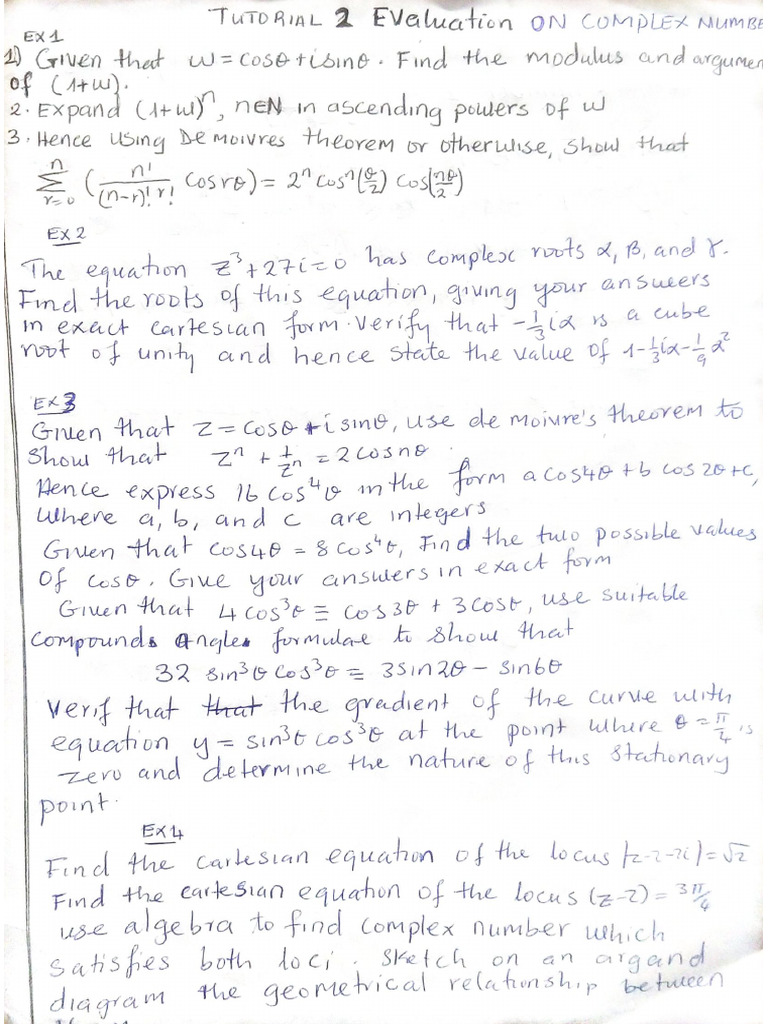 TUTORIAL 2 Evaluation ON COMPLEX NUMBE
EX1
1) Given that w = cosθ + isinθ. Find the modulus and argumen
of (1+w).
2. Expand (1+w)^n, n∈N in ascending powers of w
3. Hence using De moivres theorem or otherwise, show that
∑_{r=0}^{n} (n!/((n-r)! r!) cos rθ) = 2^n cos^n(θ/2) cos(nθ/2)
EX2
The equation z³+27i=0 has complex roots α, β, and γ.
Find the roots of this equation, giving your answers
in exact cartesian form. Verify that -1/3 iα is a cube
root of unity and hence state the value of 1-1/3 iα-1/9 α²
EX3
Given that z = cosθ + isinθ, use de moivre's theorem to
show that z^n + 1/z^n = 2cosnθ.
Hence express 16 cos⁴θ in the form a cos4θ + b cos 2θ + c,
where a, b, and c are integers
Given that cos4θ = 8cos⁴θ, Find the two possible values
of cosθ. Give your answers in exact form
Given that 4cos³θ ≡ cos3θ + 3cosθ, use suitable
compounds angles formulae to show that
32 sin³θ cos³θ ≡ 3sin2θ - sin6θ
Verif that that the gradient of the curve with
equation y = sin³θ cos³θ at the point where θ = π/4 is
zero and determine the nature of this stationary
point.
EX4
Find the cartesian equation of the locus |z-2-2i| = √2
Find the cartesian equation of the locus (z-2) = 3π/4
use algebra to find complex number which
satisfies both loci. Sketch on an argand
diagram the geometrical relationship between